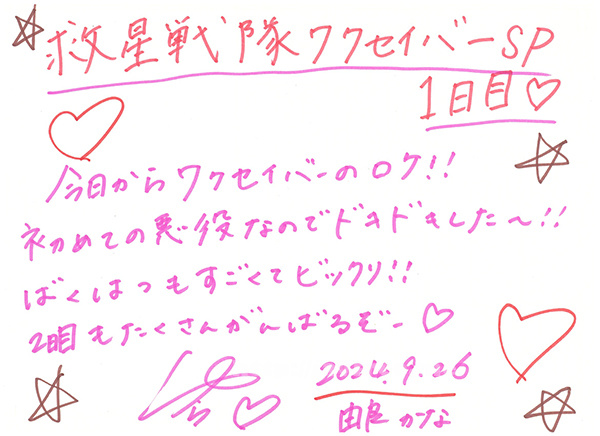 救星戦隊ワクセイバーSP
1日目♡
今日からワクセイバーのロケ!!
初めての悪役なのでドキドキした〜!!
ばくはつもすごくてビックリ!!
2日目もたくさんがんばるぞー♡
2024.9.26
由良 かな